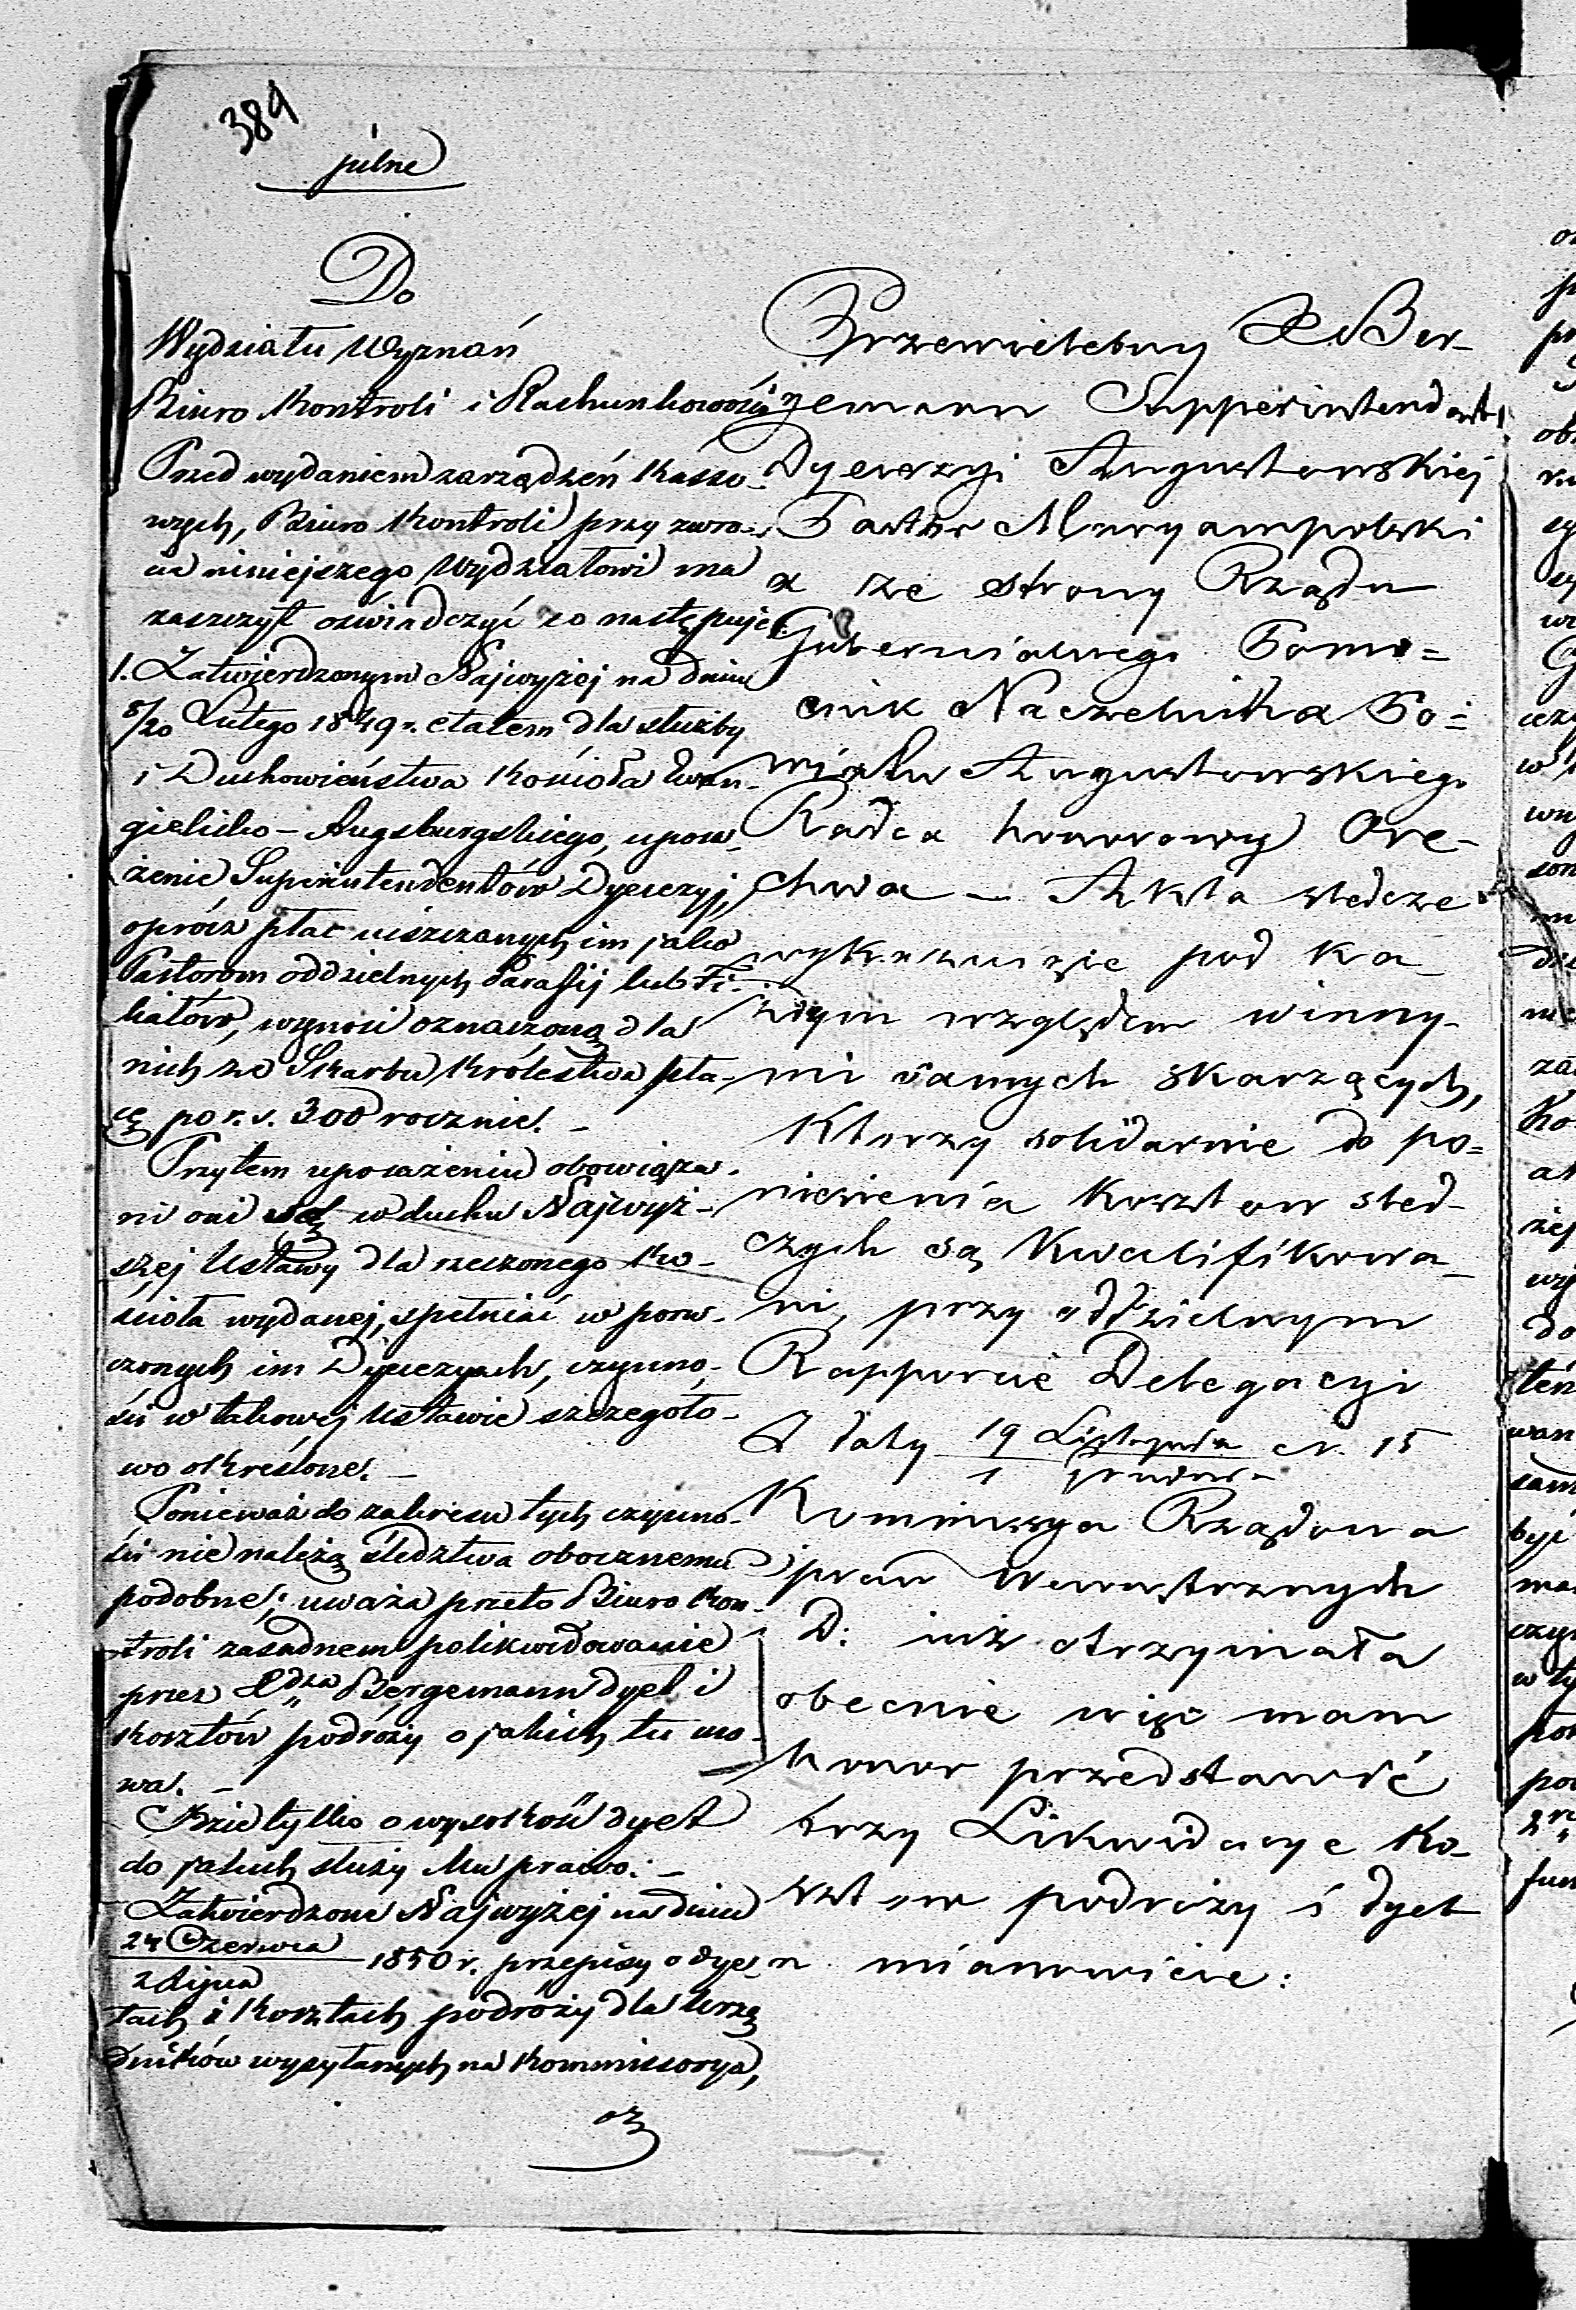 389
pilne
Do
Wydziału Wyznań
Biuro Kontroli i Rachunkowości
Przed wydaniem zarządzeń Kasso-
wych, Biuro Kontroli przy zwro-
cie niniejszego Wydziałowi ma
zaszczyt oświadczyć co następuje:
1. Zatwierdzonym Najwyżej na dniu
8/20 Lutego 1849 r. etatem dla służby
i Duchowieństwa Kościoła Ewan-
gielicko-Augsburgskiego, uposa-
żenie Superintendentów Dyecezyj,
oprócz płac uiszczanych im jako
Pastorom oddzielnych Parafij lub Fi-
liałów, wynosi oznaczoną dla
nich ze Skarbu Królestwa pła-
cę po r. s. 300 rocznie. -
Przytem uposażeniu obowiąza-
ni oni są w duchu Najwyż-
szej Ustawy dla rzeczonego Ko-
ścioła wydanej, spełniać w poru-
czonych im Dyecezyach, czynno-
ści w takowej Ustawie szczegóło-
wo określone. -
Ponieważ do zakresu tych czynno-
ści nie należą śledztwa obocznemu
podobne; uważa przeto Biuro Kon-
troli zasadnem polikwidowanie
przez Xdza Bergemann dyet i
kosztów podróży o jakich tu mo-
wa. -
Idzie tylko o wysokość dyet
do jakich służy Mu prawo: -
Zatwierdzone Najwyżej na dniu
24 Czerwca
2 Lipca
1850 r. przepisy o dye-
tach i Kosztach podróży dla Urzę
dników wysyłanych na Kommissorya,
Przewielebny X Ber-
gemann Supperintendent
Dyecezyi Augustowskiej
Pastor Maryampolski
a ze strony Rządu
Gubernialnego Pomo=
cnik Naczelnika Po=
wiatu Augustowskiego
Radca honorowy Ore-
chwa - Akta śledcze
wykazując pod ka-
żdym względem winny-
mi samych skarzących,
Ktorzy solidarnie do po=
niesienia Kosztow śled-
czych są Kwalifikowa-
ni, przy oddzielnym
Rapporcie Delegacyi
Z daty 19 Listopada N. 15
1 Grudnia
Kommissya Rządowa
Spraw Wewnętrznych
D: już otrzymała
obecnie więc mam
honor przedstawić
trzy Likwidacye Ko-
sztow podróży i dyet
a mianowicie: